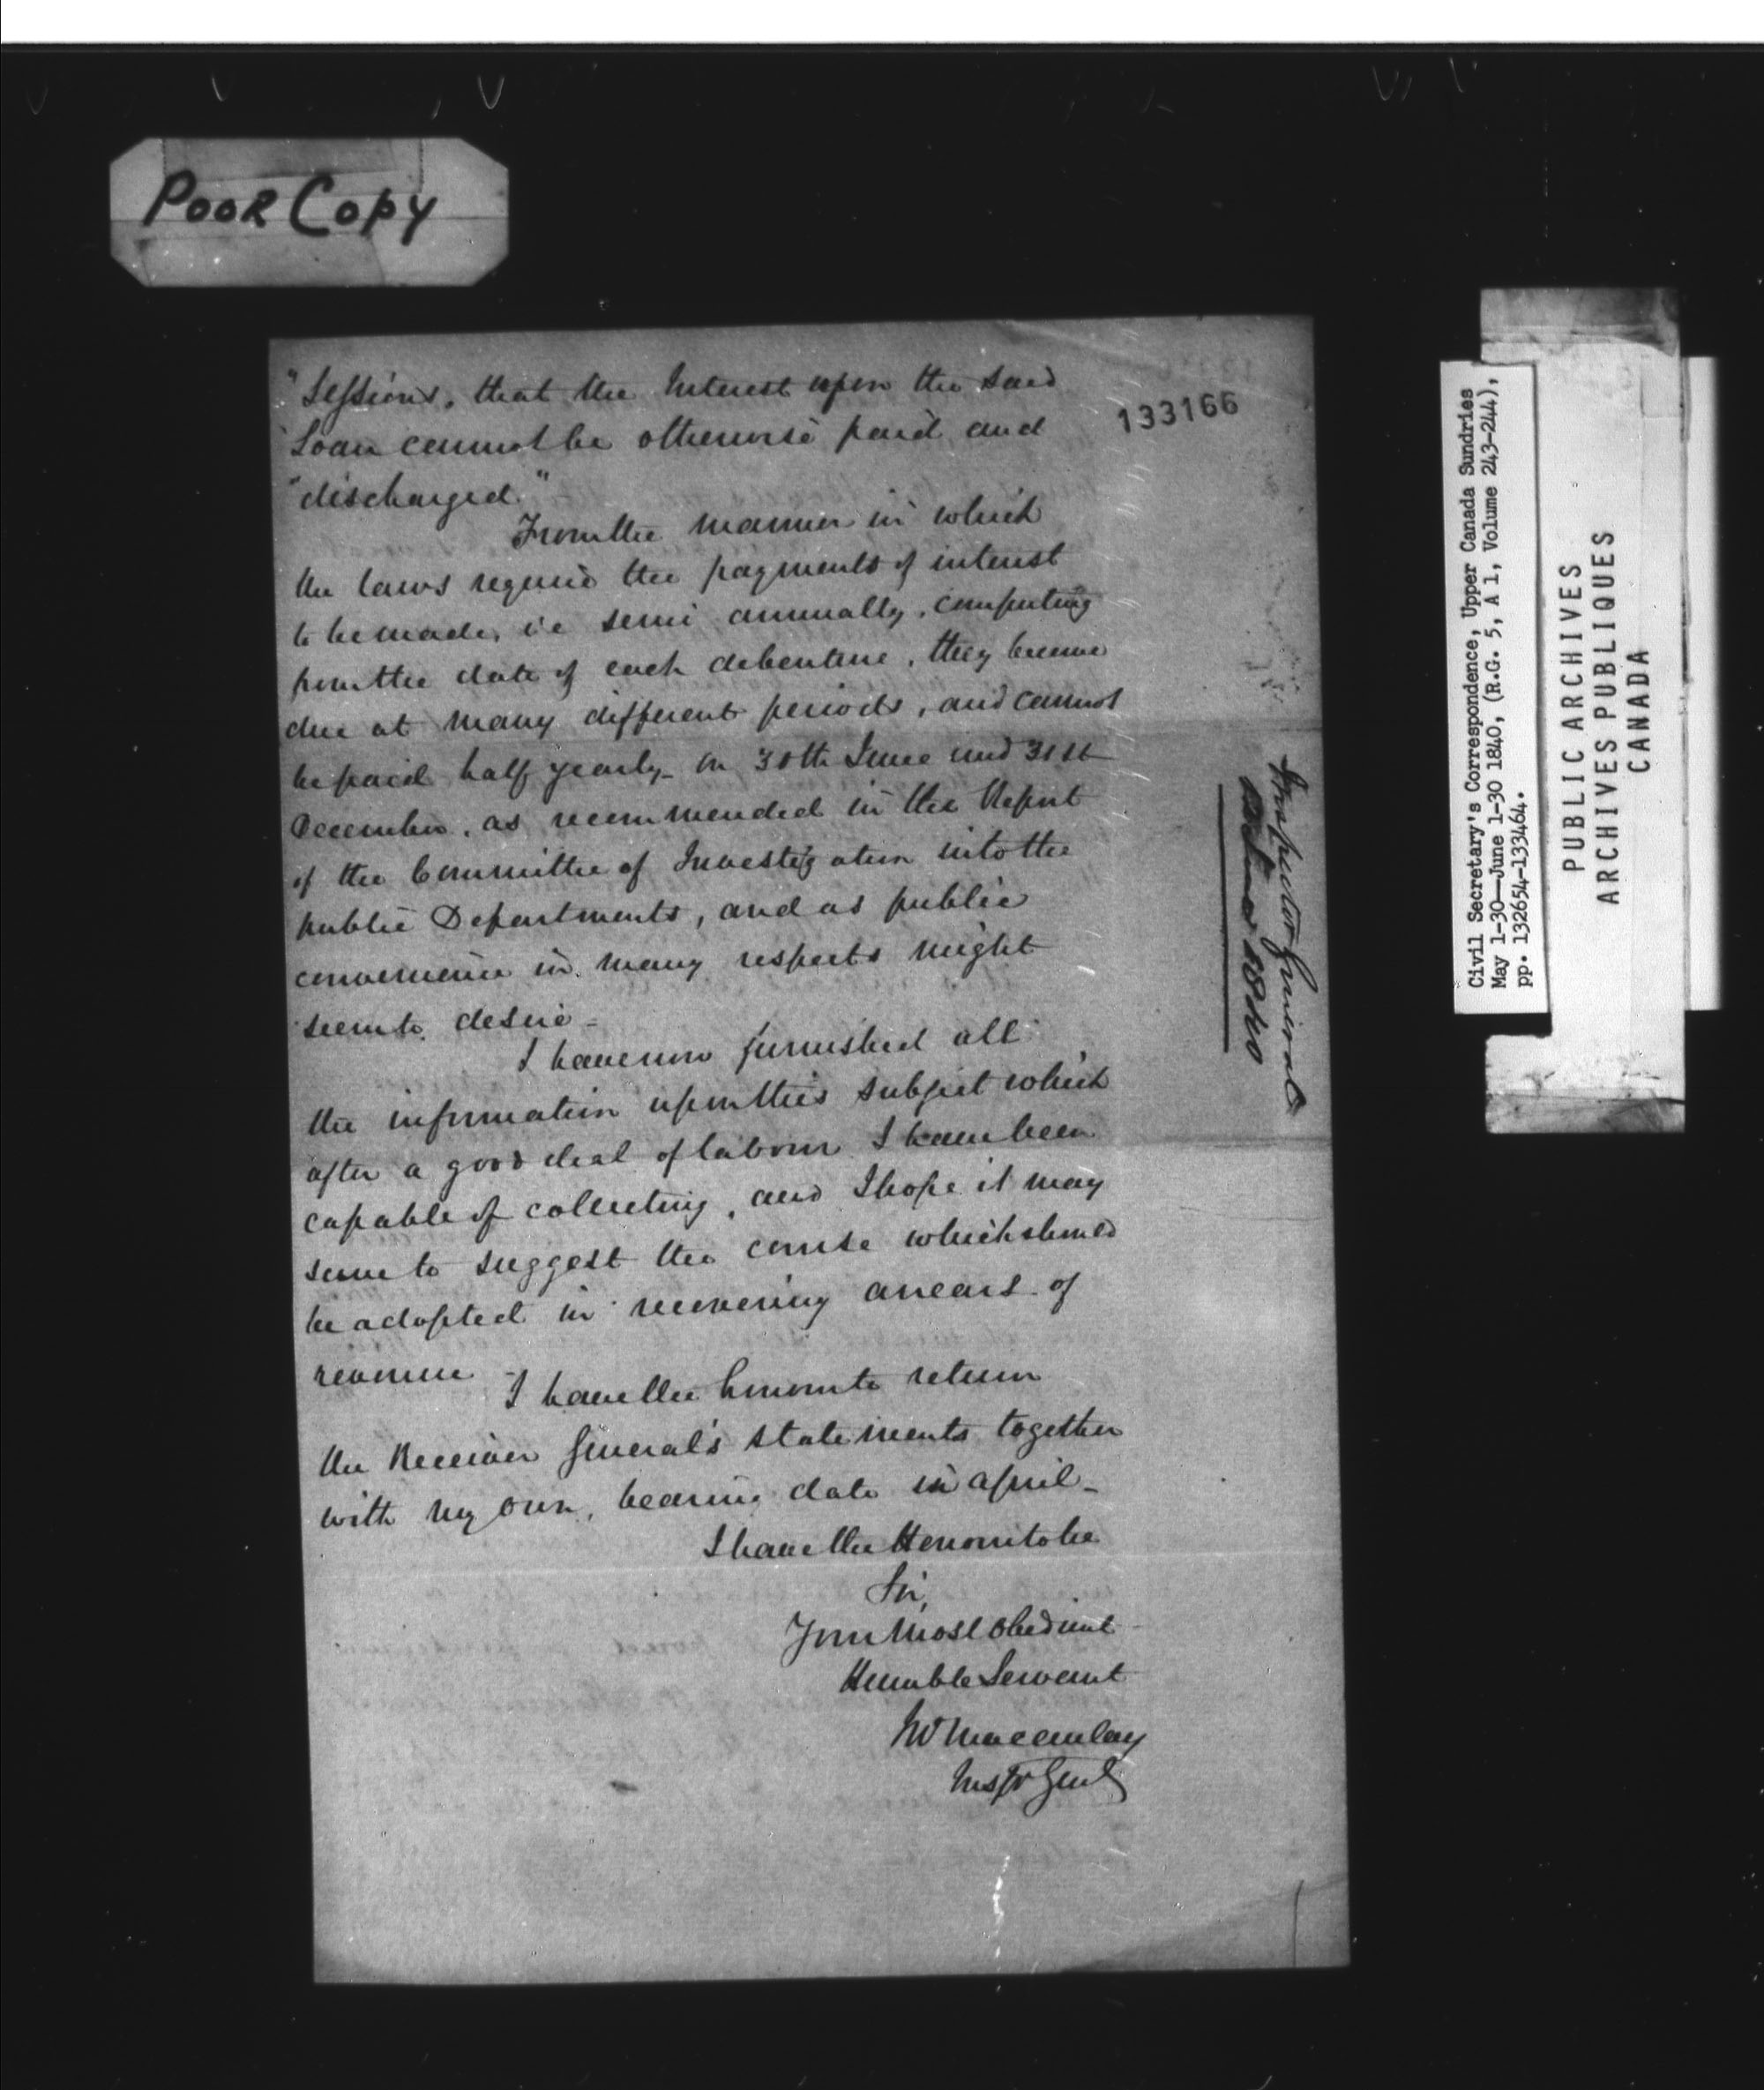 POOR COPY
133166
"Sessions, that the Interest upon the said
"Loan cannot be otherwise paid and
"discharged."
From the manner in which
the laws require the payments of interest
to be made, i.e semi annually, computing
from the date of each debenture, they become
due at many different periods, and cannot
be paid half yearly on 30th June and 31st
December, as recommended in the Report
of the Committee of Investigation into the
public Departments, and as public
convenience in many respects might
seem to desire -
I have now furnished all
the information upon this subject which
after a good deal of labour I have been
capable of collecting, and I hope it may
serve to suggest the course which should
be adopted in recovering arrears of
revenue -
I have the honour to return
the Receiver General's statements together
with my own, bearing date in april -
I have the Honour to be
Sir,
Your Most Obedient
Humble Servant
Macaulay
Inspr Genl
Inspector General
1840
Civil Secretary's Correspondence, Upper Canada Sundries
May 1-30—June 1-30 1840, (R.G. 5, A 1, Volume 243-244),
pp. 132654-133464.
PUBLIC ARCHIVES
ARCHIVES PUBLIQUES
CANADA